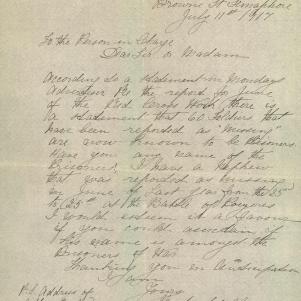 Browne St Semaphore
July 11th 1917
To the Person in Charge
Dear Sir or Madam
According to a statement in Mondays
Advertiser Re the report for June
of the Red Cross Work there is
a statement that 60 Soldiers that
have been reported as "Missing"
are now known to be Prisoners
Have you any name of the
Prisoners. I have a Nephew
that was reported as missing
in June of last year from the
to 25th at the Battle of
I would esteem it a favour
if you could ascertain if
his name is amongst the
Prisoners of War
Thanking you in Anticipation
I am
Yours
P.S. Address of